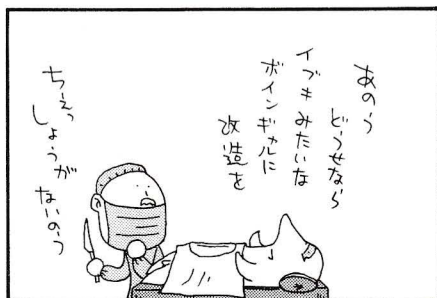 あのう
どうせなら
イブキみたいな
ボインギャルに
改造を
ちぇっ
しょうが
ないのう